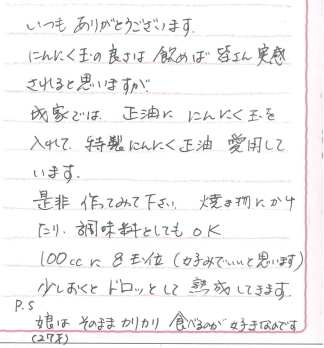 いつも ありがとうございます.
にんにく玉の良さは 飲めば 皆さん 実感
されると思いますが.
我家では. 正油に にんにく玉を
入れて. 特製にんにく正油 愛用して
います.
是非 作ってみて下さい. 焼き物にかけ
たり. 調味料としても OK
100ccに 8玉位 (好みでいいと思います)
少しおくと ドロッとして 熟成してきます.
P.S
娘は そのまま カリカリ 食べるのが 好きなんです
(27才)